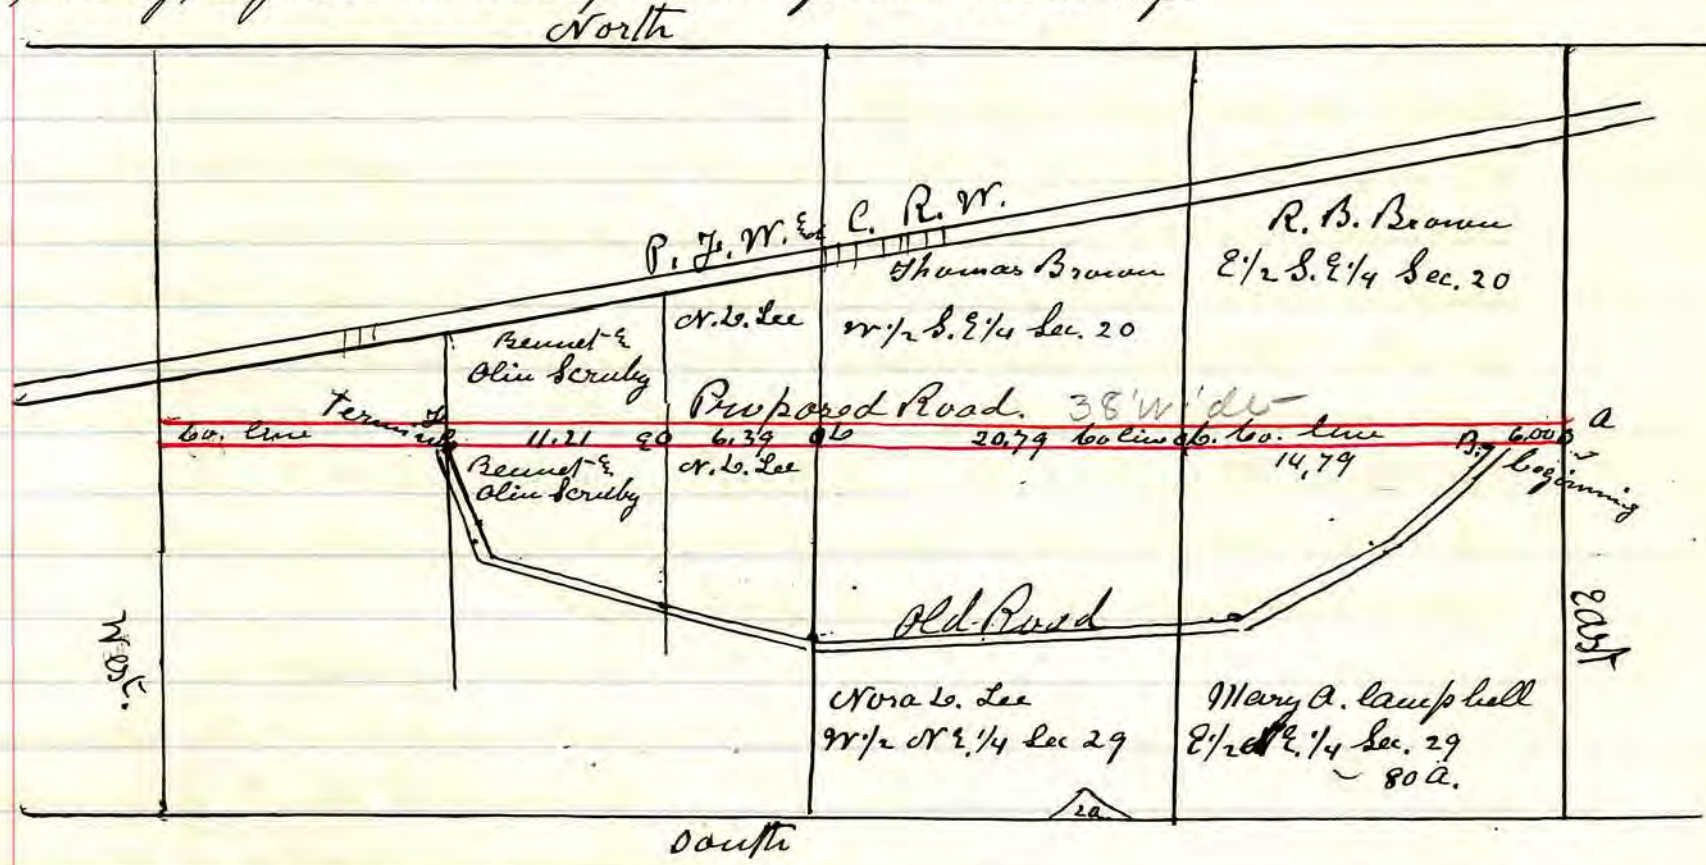 North
P. F. W. & C. R. W.
R. B. Brown
E 1/2 S. E 1/4 Sec. 20
Thomas Brown
W 1/2 S. E 1/4 Sec. 20
N. L. Lee
Bennet &
Olin Scruby
Proposed Road. 38' wide
A
Co. line
11.21
6.39
20.79 Co line
Co. line
B.
6.00
beginning
14.79
Bennet &
Olin Scruby
N. L. Lee
Old Road
West.
East
Nora L. Lee
W 1/2 N E 1/4 Sec 29
Mary A. Campbell
E 1/2 N E. 1/4 Sec. 29
80 A.
2a
South